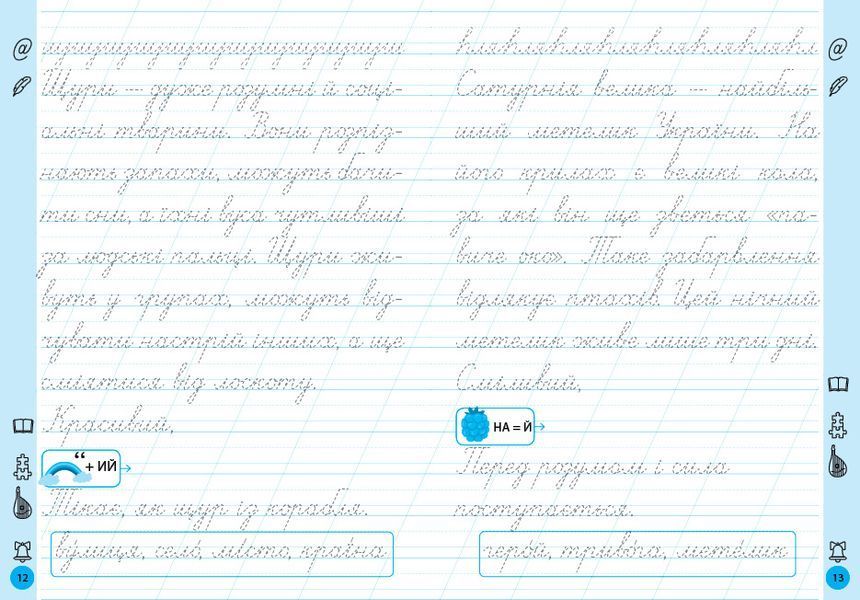 Щури — дуже розумні й соці-
альні тварини. Вони розпіз-
нають запахи, можуть бачи-
ти сни, а їхні вуса чутливіші
за людські пальці. Щури жи-
вуть у групах, можуть від-
чувати настрій інших, а ще
сміятися від лоскоту.
Красивий,
“ + ИЙ
Тікає, як щур із корабля.
ву́лиця, село́, мі́сто, краї́на
12
Сатурнія велика — найбіль-
ший метелик України. На
його крилах є великі кола,
за які він ще зветься «па-
виче око». Таке забарвлення
відлякує птахів. Цей нічний
метелик живе лише три дні.
Сміливий,
НА = Й
Перед розумом і сила
поступається.
геро́й, триво́га, мете́лик
13